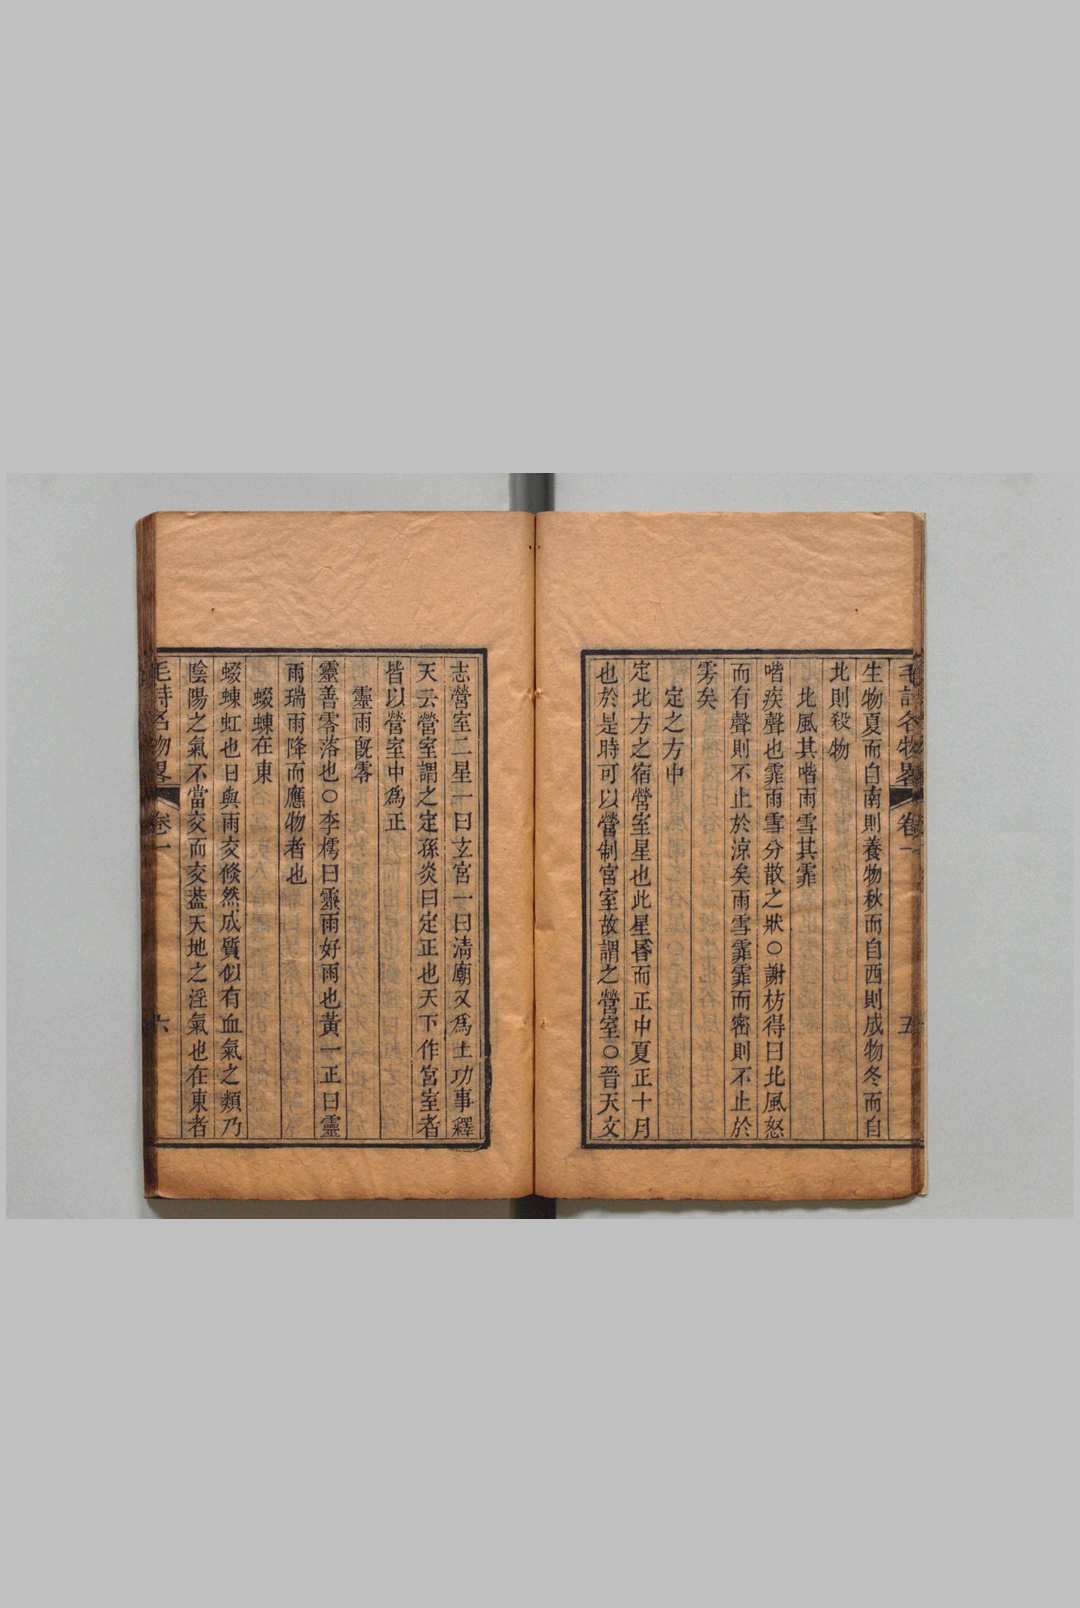 毛詩名物畧 卷一 五
生物夏而自南則養物秋而自西則成物冬而自
北則殺物
北風其喈雨雪其霏
喈疾聲也霏雨雪分散之狀○謝枋得曰北風怒
而有聲則不止於涼矣雨雪霏霏而密則不止於
雱矣
定之方中
定北方之宿營室星也此星昏而正中夏正十月
也於是時可以營制宮室故謂之營室○晉天文
志營室二星一曰玄宮一曰淸廟又爲土功事釋
天云營室謂之定孫炎曰定正也天下作宮室者
皆以營室中爲正
靈雨旣零
靈善零落也○李樗曰靈雨好雨也黃一正曰靈
雨瑞雨降而應物者也
蝃蝀在東
蝃蝀虹也日與雨交倐然成質似有血氣之類乃
陰陽之氣不當交而交葢天地之淫氣也在東者
毛詩名物畧 卷一 六